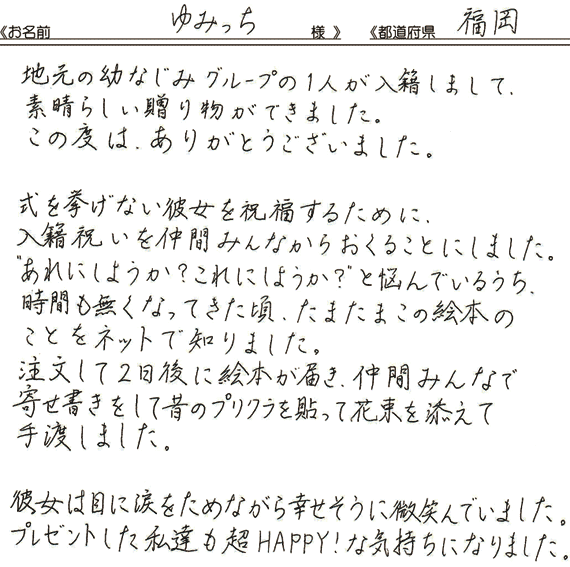 《お名前 ゆみっち 様》 《都道府県 福岡
地元の幼なじみグループの1人が入籍しまして、
素晴らしい贈り物ができました。
この度は、ありがとうございました。
式を挙げない彼女を祝福するために、
入籍祝いを仲間みんなからおくることにしました。
"あれにしようか?これにしようか?"と悩んでいるうち、
時間も無くなってきた頃、たまたまこの絵本の
ことをネットで知りました。
注文して2日後に絵本が届き、仲間みんなで
寄せ書きをして昔のプリクラを貼って花束を添えて
手渡しました。
彼女は目に涙をためながら幸せそうに微笑んでいました。
プレゼントした私達も超HAPPY!な気持ちになりました。